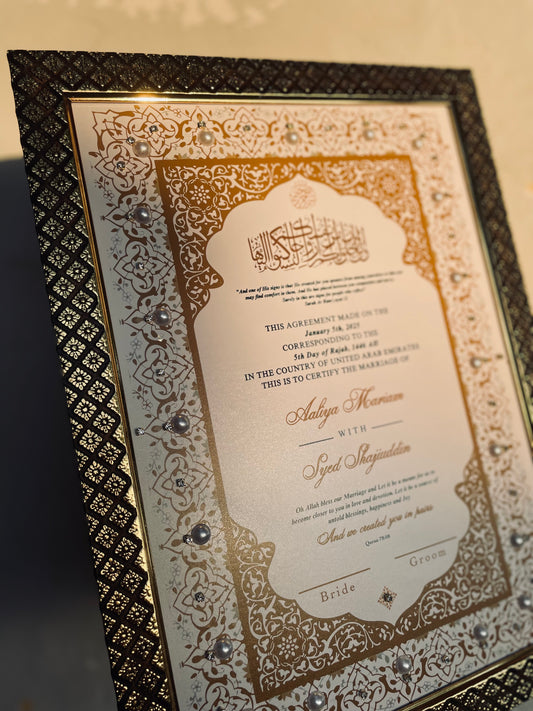 "And one of His signs is that He created for you spouses from among yourselves so that you
may find comfort in them. And He has placed between you compassion and mercy.
Surely in this are signs for people who reflect"
THIS AGREEMENT MADE ON THE
January 5th, 2025
CORRESPONDING TO THE
5th Day of Rajab, 1446 AH
IN THE COUNTRY OF UNITED ARAB EMIRATES
THIS IS TO CERTIFY THE MARRIAGE OF
Aaliya Mariam
WITH
Syed Shajuddin
Oh Allah bless our Marriage and Let it be a means for us to
become closer to you in love and devotion. Let it be a source of
untold blessings, happiness and Joy
And we created you in pairs
Quran 78:8
Bride
Groom